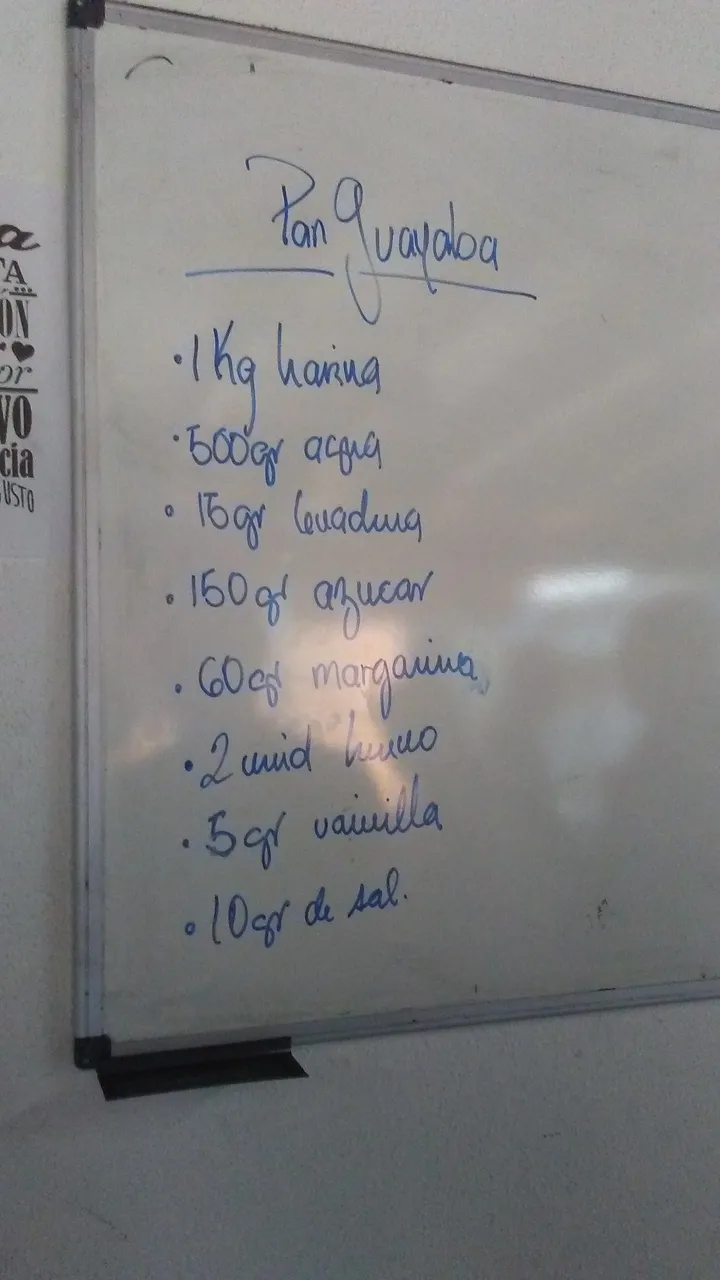 a
TA
ON
or
VO
cia
GUSTO
Pan Guayaba
• 1 Kg harina
• 500gr acqua
• 15gr levadura
• 150gr azucar
• 60gr margarina
• 2 unid huevo
• 5gr vainilla
• 10gr de sal.